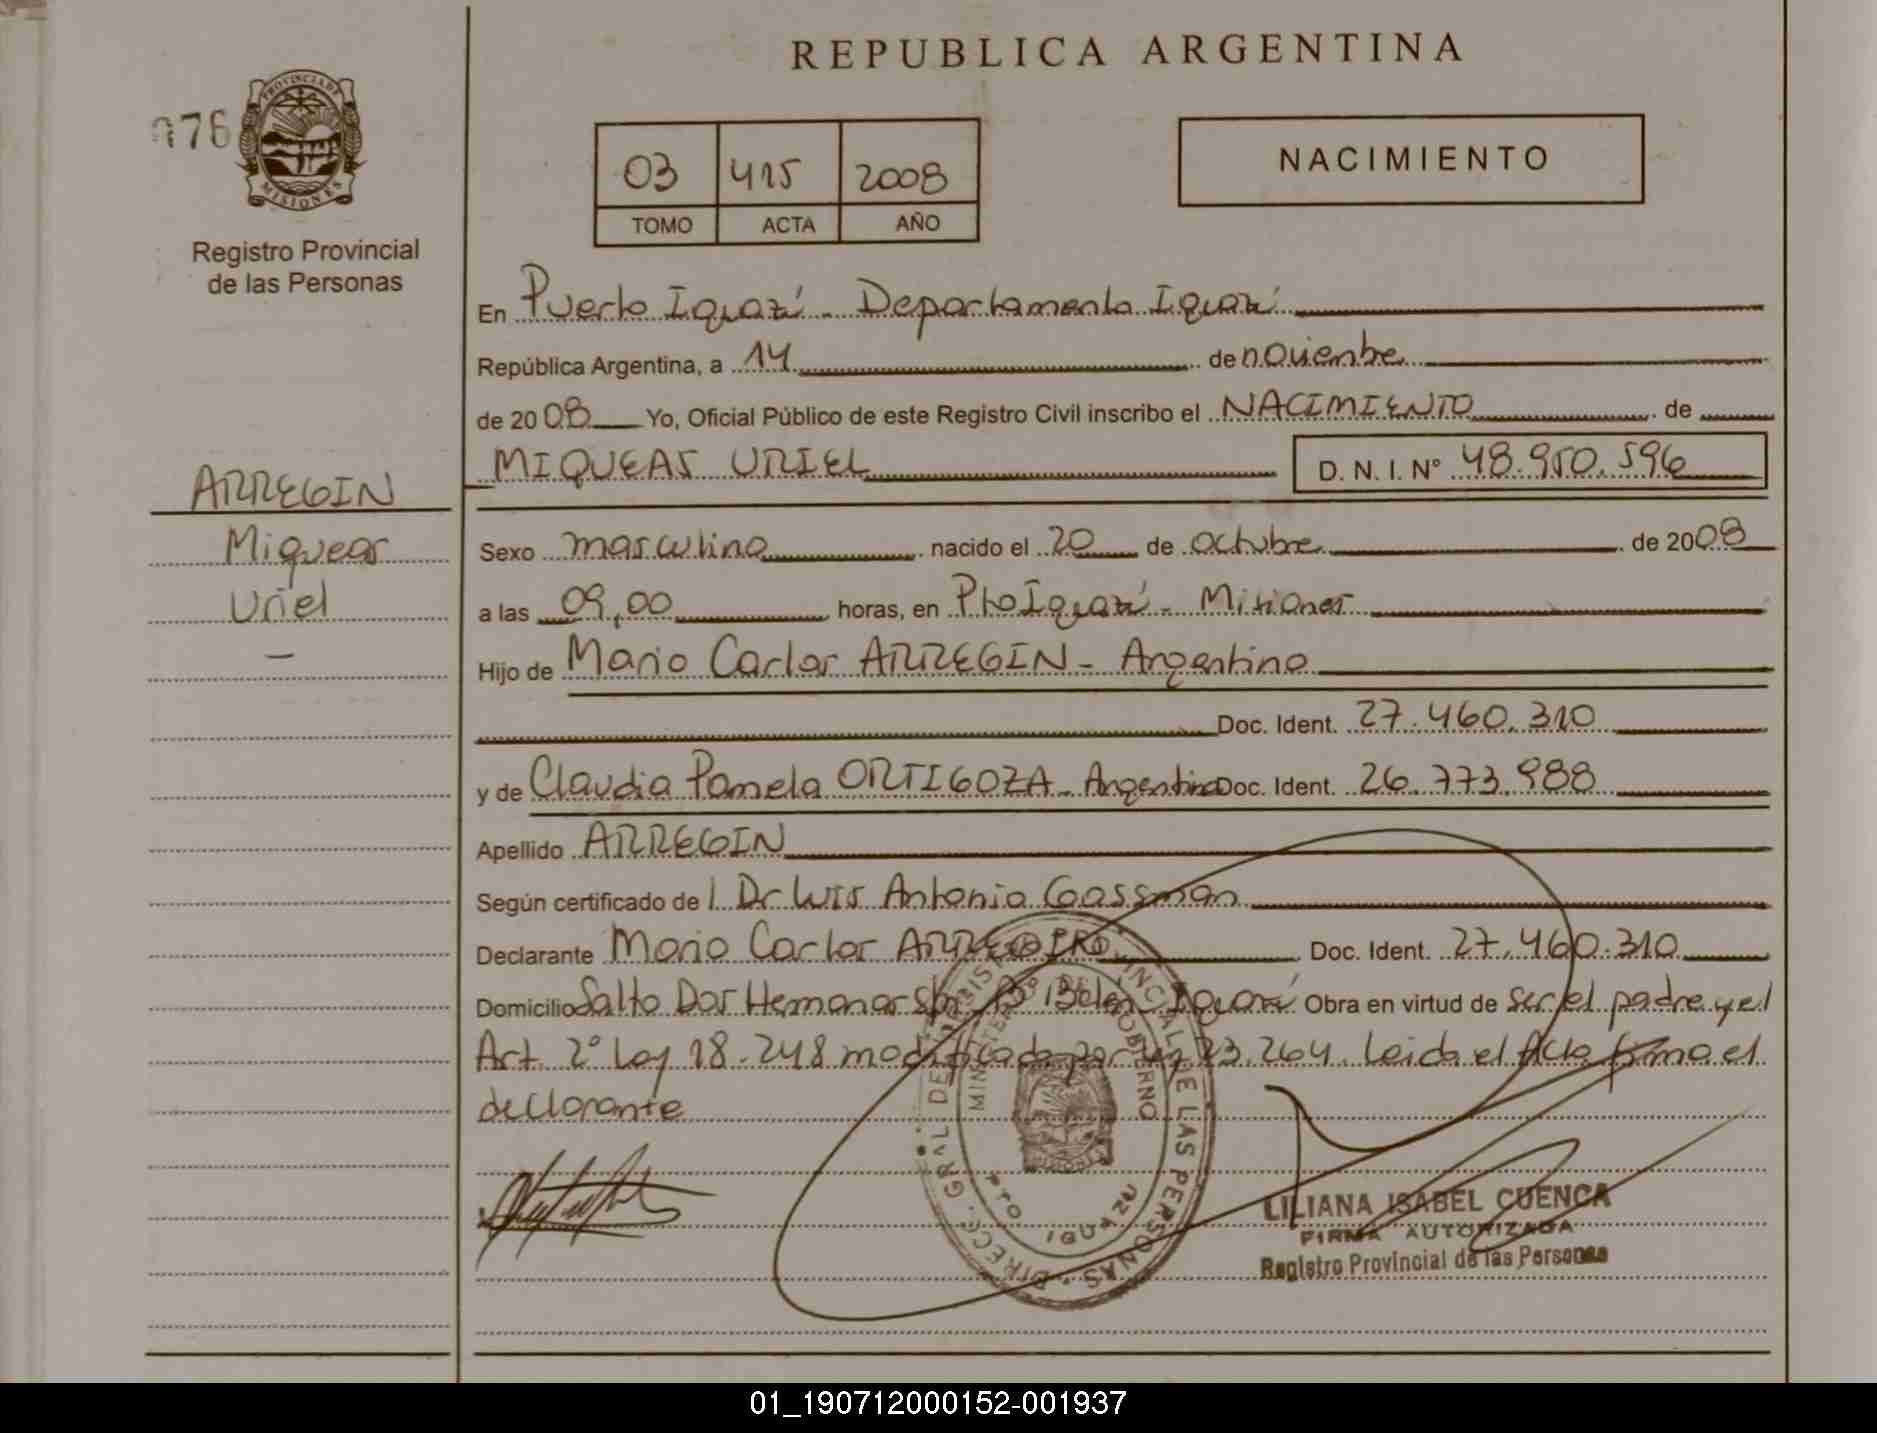 REPUBLICA ARGENTINA
076
PROVINCIA DE
MISIONES
Registro Provincial
de las Personas
03 415 2008
TOMO ACTA AÑO
NACIMIENTO
En Puerto Iguazú - Departamento Iguazú
República Argentina, a 14 de noviembre
de 2008 Yo, Oficial Público de este Registro Civil inscribo el NACIMIENTO de
MIQUEAS URIEL D. N. I. N° 48.950.596
ARREGIN
Miqueas
Uriel
-
Sexo masculino nacido el 20 de octubre de 2008
a las 09,00 horas, en Pto Iguazú - Misiones
Hijo de Mario Carlos ARREGIN - Argentino
Doc. Ident. 27.460.310
y de Claudia Pamela ORTIGOZA - Argentina Doc. Ident. 26.773.988
Apellido ARREGIN
Según certificado de l Dr Luis Antonio Gassman
Declarante Mario Carlos ARREGIN Doc. Ident. 27.460.310
Domicilio Salto Dos Hermanas S/n B° Belén Iguazú Obra en virtud de ser el padre y el
Art. 2° Ley 18.248 modificada por Ley 23.264. Leida el Acta firma el
declarante
DIRECC. GRAL DEL REGISTRO PROVINCIAL DE LAS PERSONAS
MINISTERIO DE GOBIERNO
PTO IGUAZU
LILIANA ISABEL CUENCA
FIRMA AUTORIZADA
Registro Provincial de las Personas
01_190712000152-001937